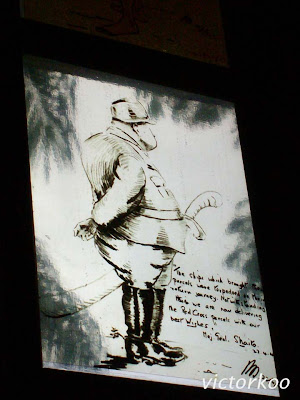 The ships which brought the
parcels were torpedoed on their
return journey.
we are now delivering
the Red Cross parcels with our
best wishes"
Maj. Genl. Shaito
victorkoo